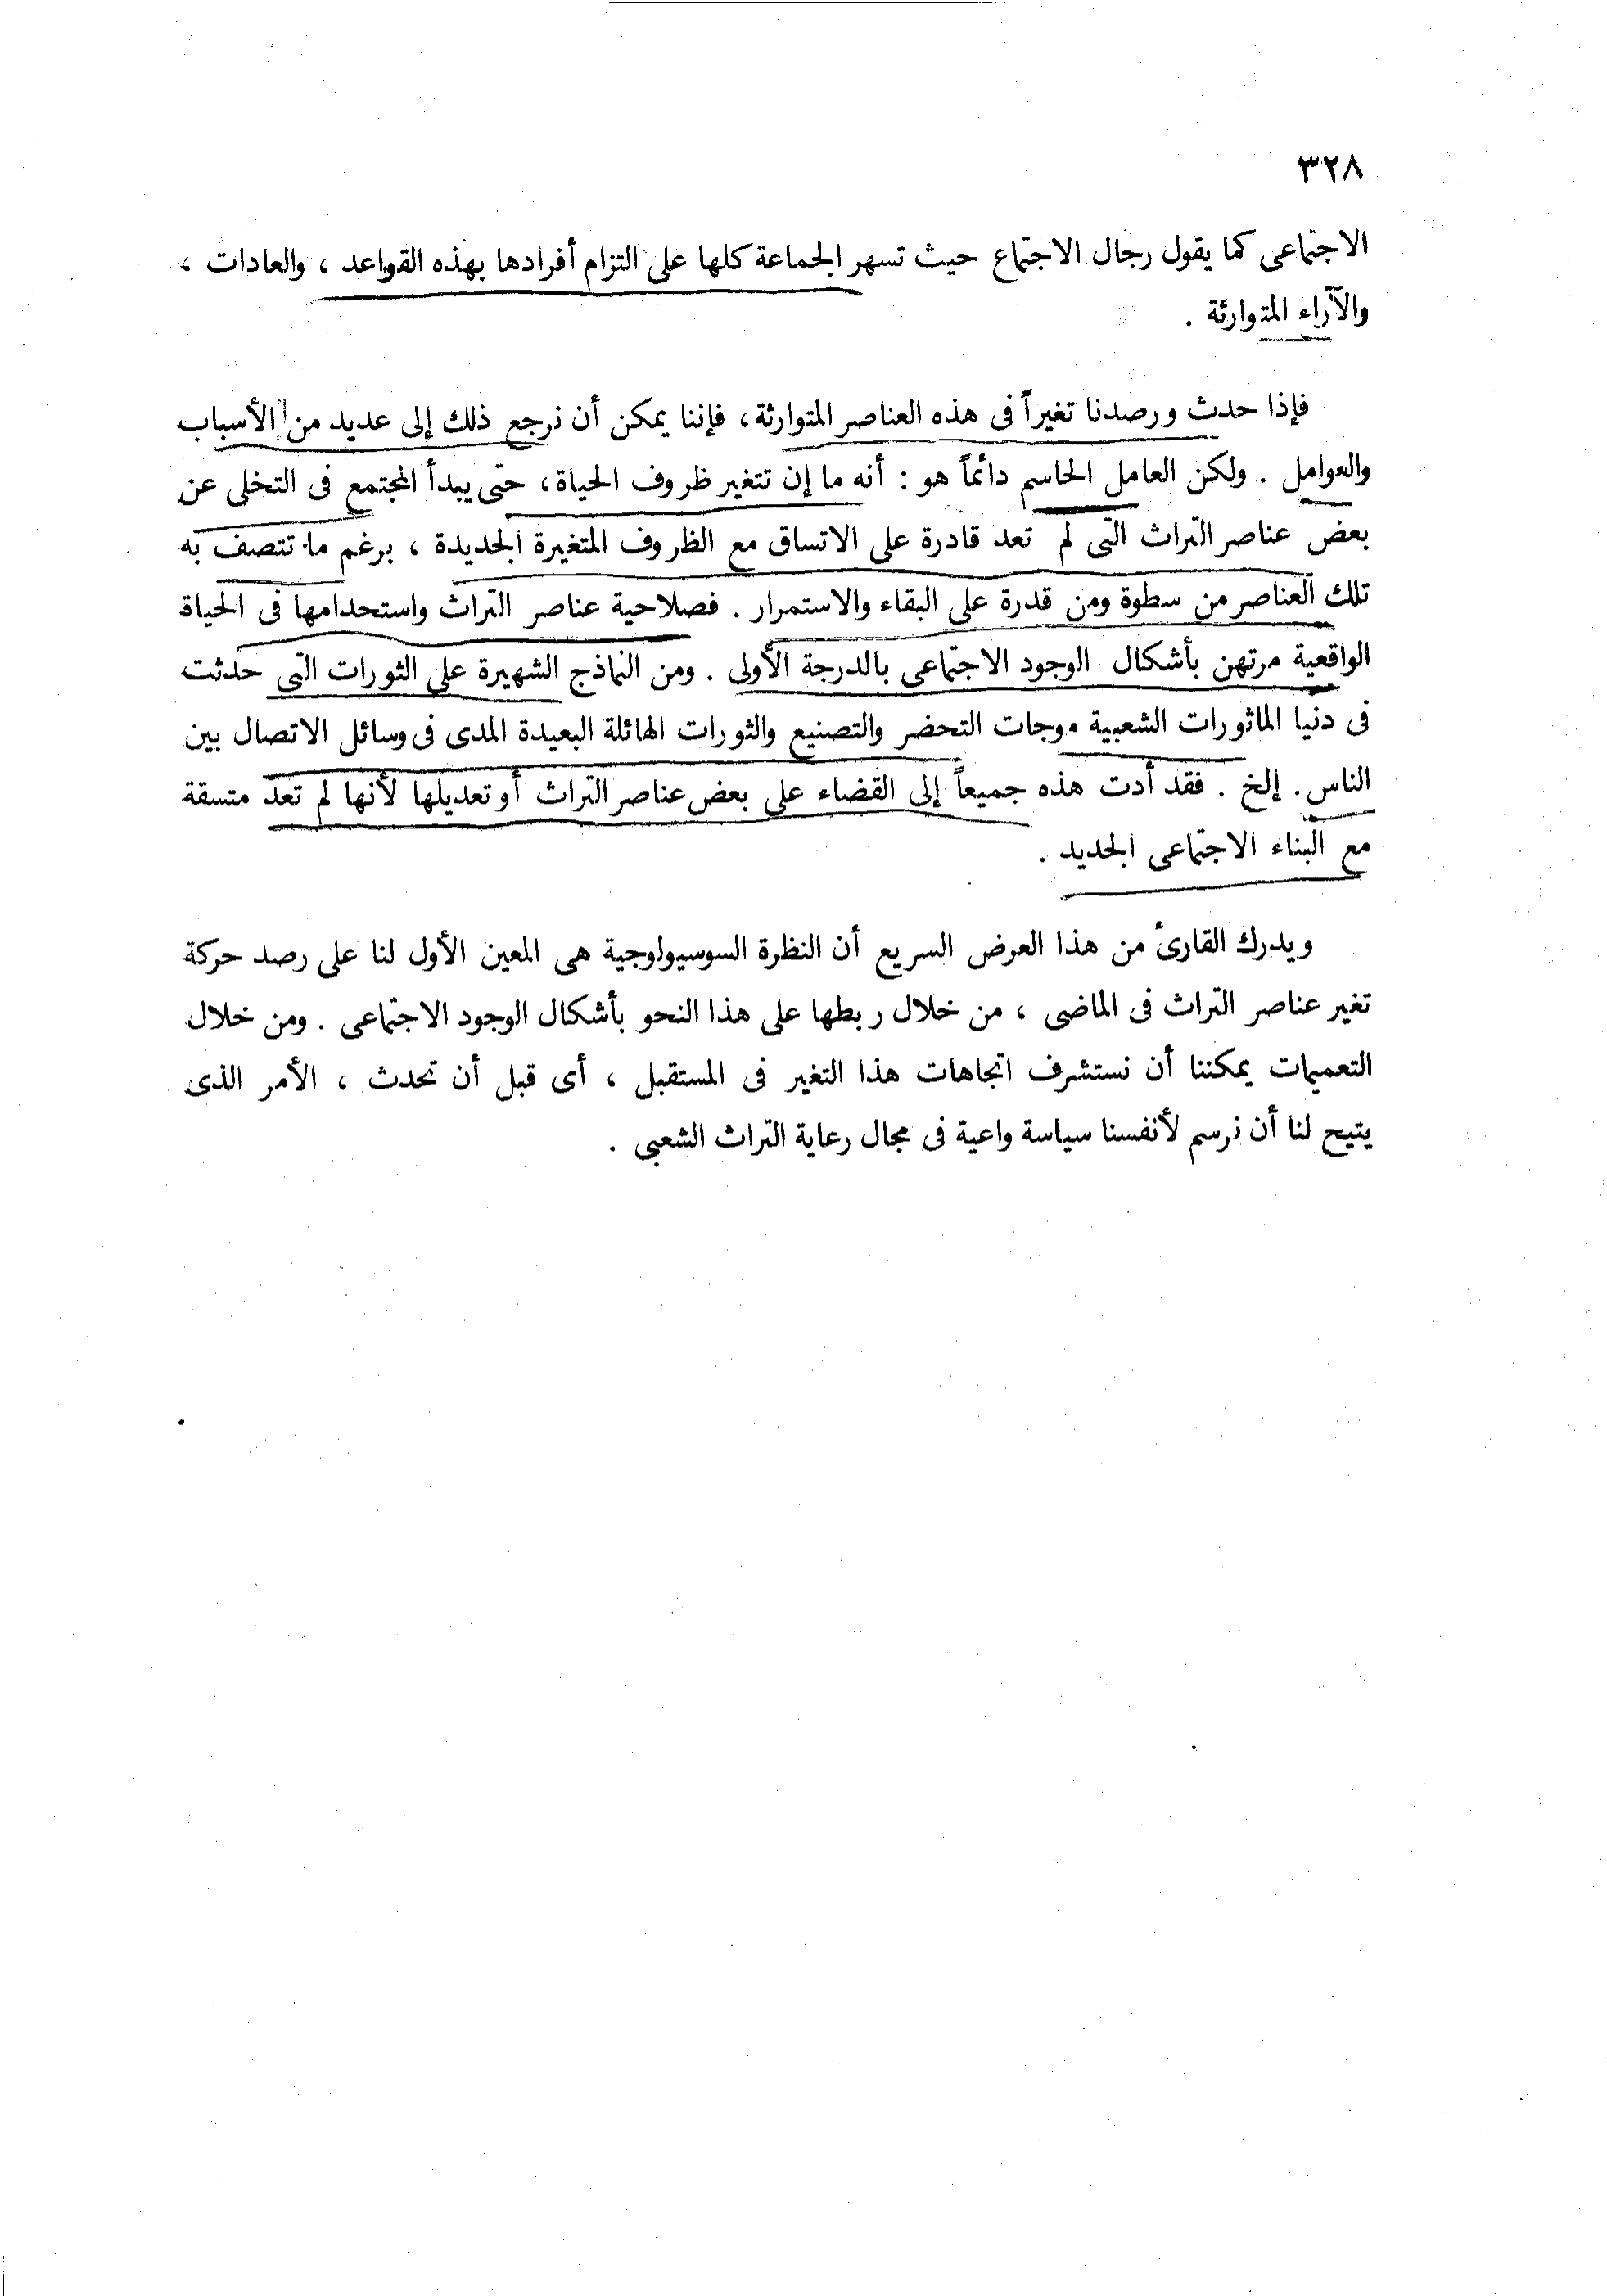 ٣٢٨
الاجتماعى كما يقول رجال الاجتماع حيث تسهر الجماعة كلها على التزام أفرادها بهذه القواعد ، والعادات ،
والآراء المتوارثة .
فإذا حدث ورصدنا تغيراً فى هذه العناصر المتوارثة، فإننا يمكن أن نرجع ذلك إلى عديد من الأسباب
والعوامل . ولكن العامل الحاسم دائماً هو : أنه ما إن تتغير ظروف الحياة، حتى يبدأ المجتمع فى التخلى عن
بعض عناصر التراث التى لم تعد قادرة على الاتساق مع الظروف المتغيرة الجديدة ، برغم ما تتصف به
تلك العناصر من سطوة ومن قدرة على البقاء والاستمرار . فصلاحية عناصر التراث واستحدامها فى الحياة
الواقعية مرتهن بأشكال الوجود الاجتماعى بالدرجة الأولى . ومن النماذج الشهيرة على الثورات التى حدثت
فى دنيا الماثورات الشعبية موجات التحضر والتصنيع والثورات الهائلة البعيدة المدى فى وسائل الاتصال بين
الناس . إلخ . فقد أدت هذه جميعاً إلى القضاء على بعض عناصر التراث أو تعديلها لأنها لم تعد متسقة
مع البناء الاجتماعى الجديد .
ويدرك القارئ من هذا العرض السريع أن النظرة السوسيولوجية هى المعين الأول لنا على رصد حركة
تغير عناصر التراث فى الماضى ، من خلال ربطها على هذا النحو بأشكال الوجود الاجتماعى . ومن خلال
التعميمات يمكننا أن نستشرف اتجاهات هذا التغير فى المستقبل ، أى قبل أن تحدث ، الأمر الذى
يتيح لنا أن نرسم لأنفسنا سياسة واعية فى مجال رعاية التراث الشعبى .